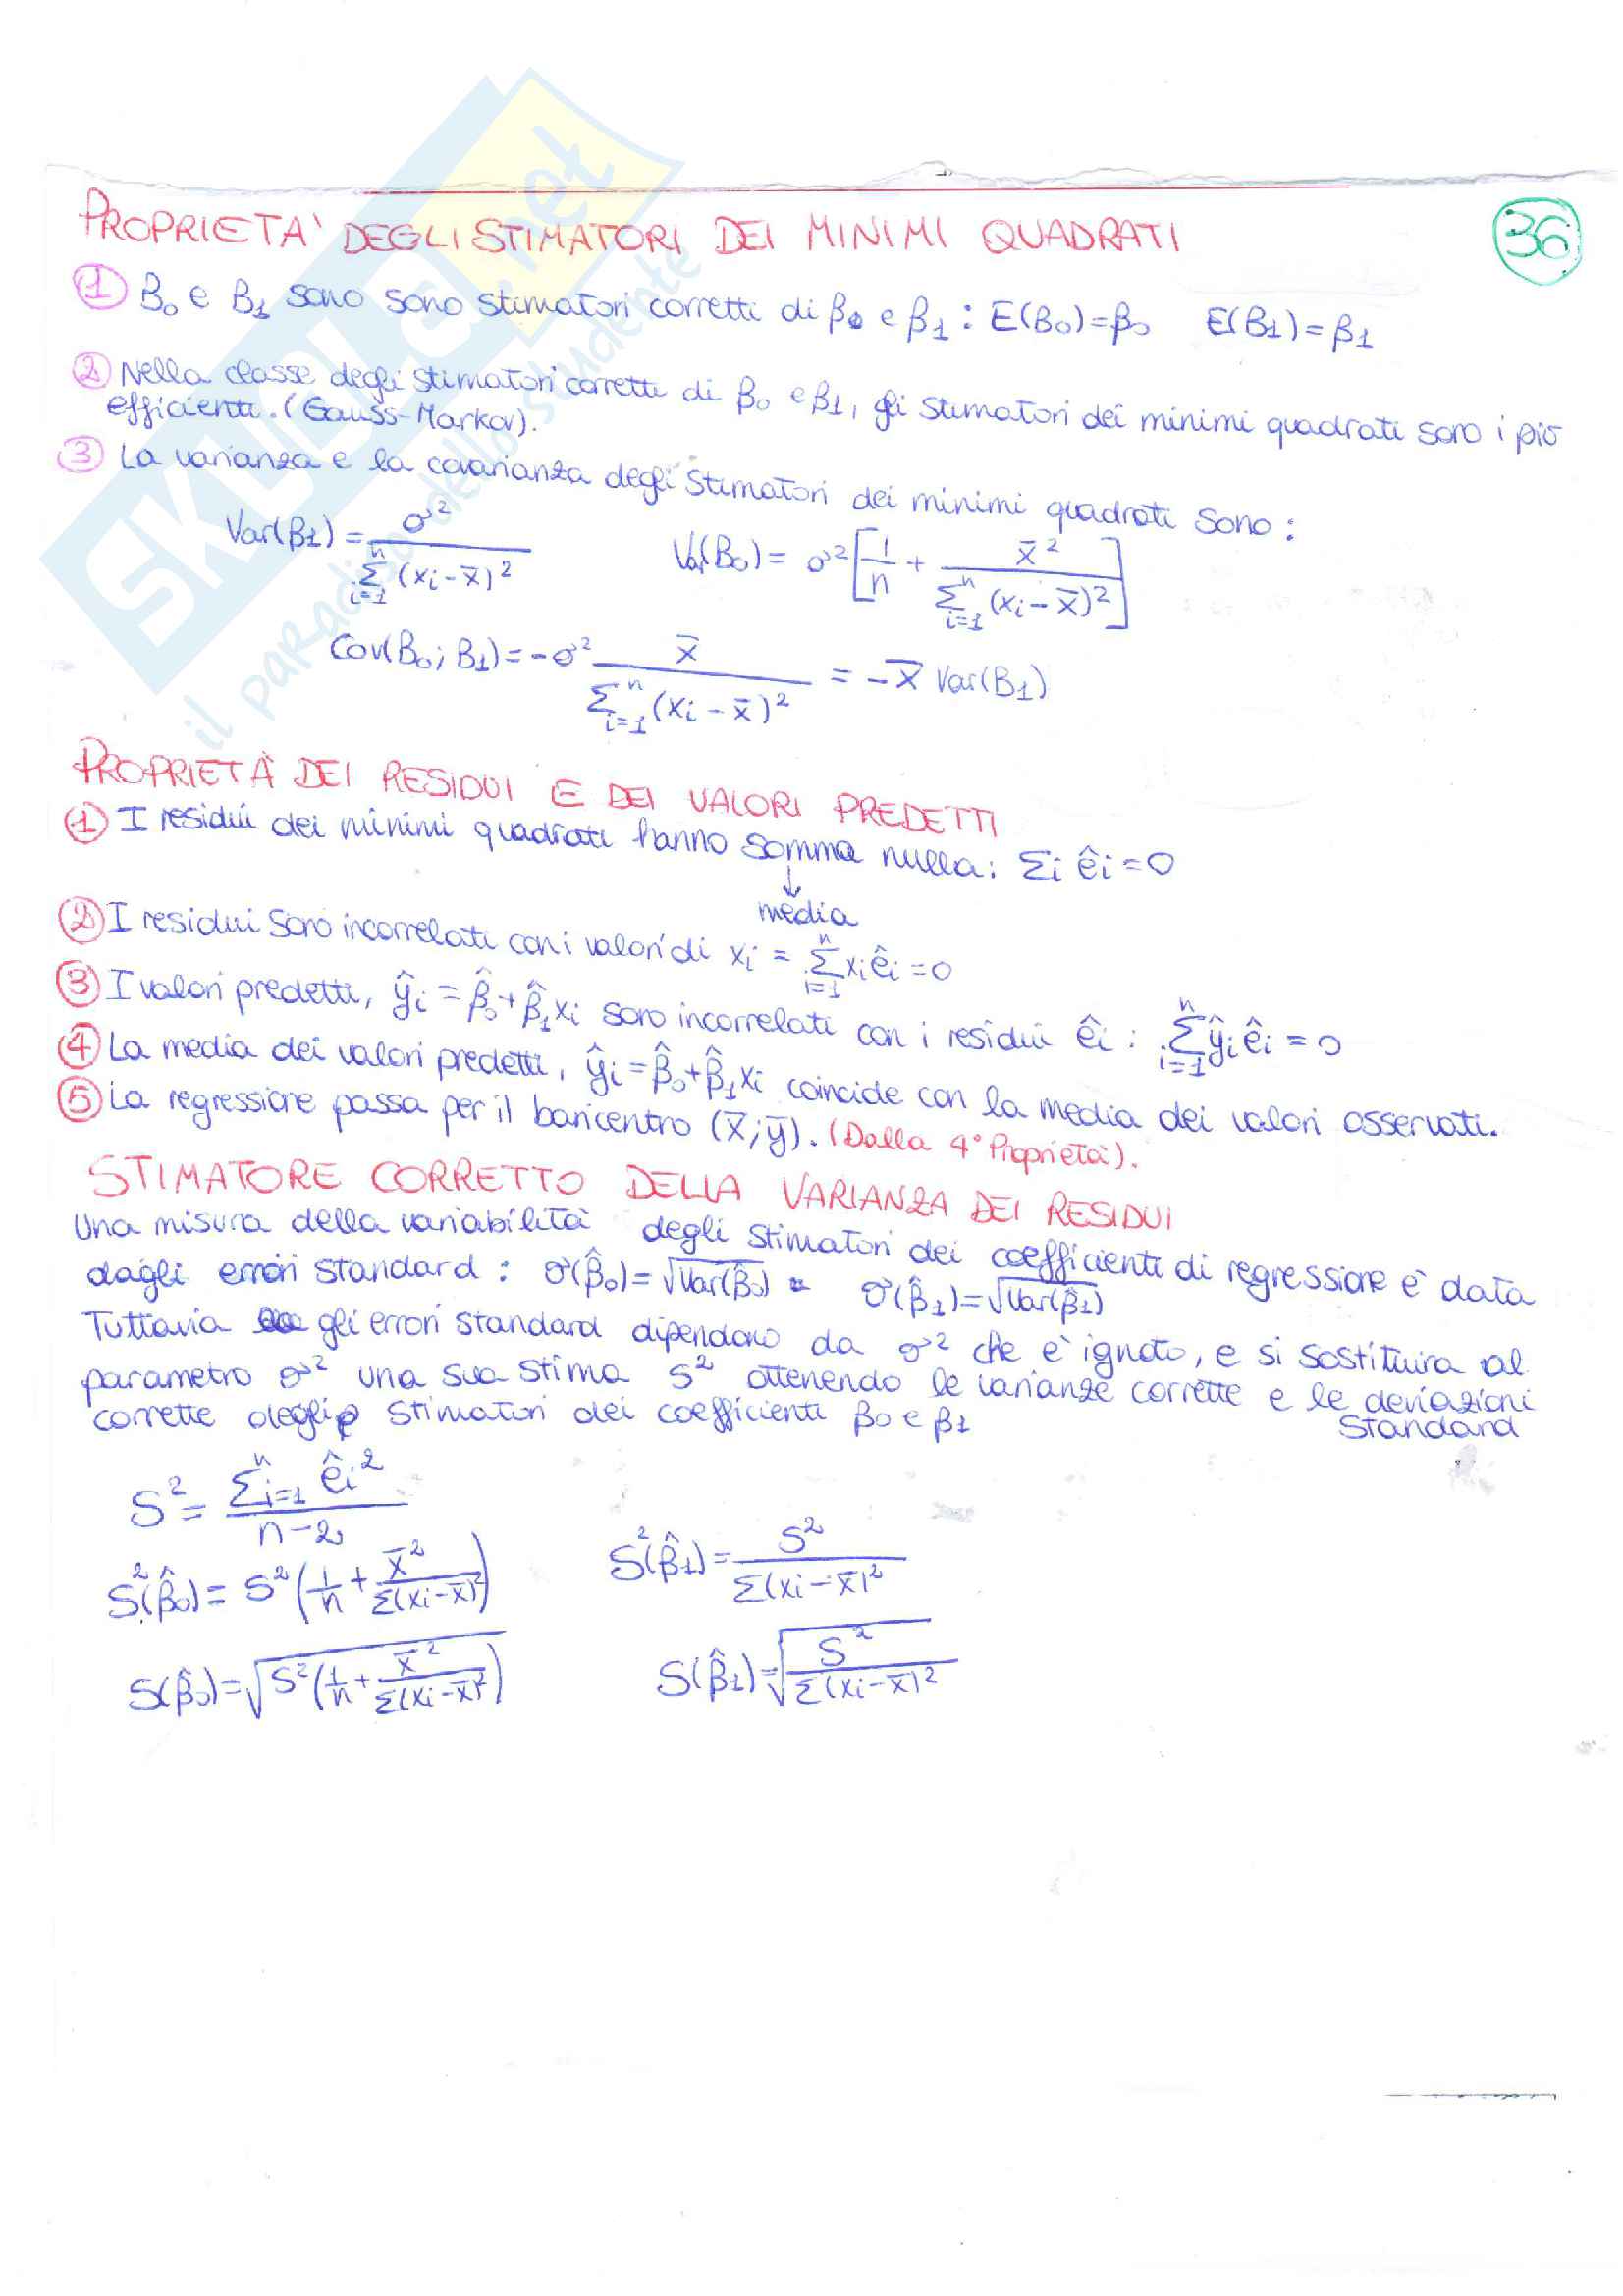 SKUOLA.net
il paradiso dello studente
36
PROPRIETA' DEGLI STIMATORI DEI MINIMI QUADRATI
① B₀ e B₁ sono sono stimatori corretti di β₀ e β₁ : E(B₀)=β₀ E(B₁)=β₁
② Nella classe degli stimatori corretti di β₀ e β₁, gli stimatori dei minimi quadrati sono i più
efficienti. (Gauss-Markov).
③ La varianza e la covarianza degli stimatori dei minimi quadrati sono :
Var(B₁) = σ² / Σⁿᵢ₌₁ (xi - x̄)² Var(B₀) = σ² [1/n + x̄² / Σⁿᵢ₌₁ (xi - x̄)²]
Cov(B₀; B₁) = -σ² x̄ / Σⁿᵢ₌₁ (xi - x̄)² = -x̄ Var(B₁)
PROPRIETÀ DEI RESIDUI E DEI VALORI PREDETTI
① I residui dei minimi quadrati hanno somma nulla: Σi êi = 0
↓
media
② I residui sono incorrelati con i valori di xi = Σⁿᵢ₌₁ xi êi = 0
③ I valori predetti, ŷi = β̂₀ + β̂₁xi sono incorrelati con i residui êi : Σⁿᵢ₌₁ ŷi êi = 0
④ La media dei valori predetti, ŷi = β̂₀ + β̂₁xi coincide con la media dei valori osservati.
⑤ La regressione passa per il baricentro (x̄; ȳ). (Dalla 4° Proprietà).
STIMATORE CORRETTO DELLA VARIANZA DEI RESIDUI
Una misura della variabilità degli stimatori dei coefficienti di regressione è data
dagli errori standard : σ(β̂₀) = √Var(β̂₀) = σ(β̂₁) = √Var(β̂₁)
Tuttavia gli errori standard dipendono da σ² che è ignoto, e si sostituira al
parametro σ² una sua stima s² ottenendo le varianze corrette e le deviazioni
standard
corrette degli stimatori dei coefficienti β₀ e β₁
S² = Σⁿᵢ₌₁ êi² / n-2
S²(β̂₀) = S² (1/n + x̄² / Σ(xi - x̄)²) S²(β̂₁) = S² / Σ(xi - x̄)²
S(β̂₀) = √S² (1/n + x̄² / Σ(xi - x̄)²) S(β̂₁) = √S² / Σ(xi - x̄)²